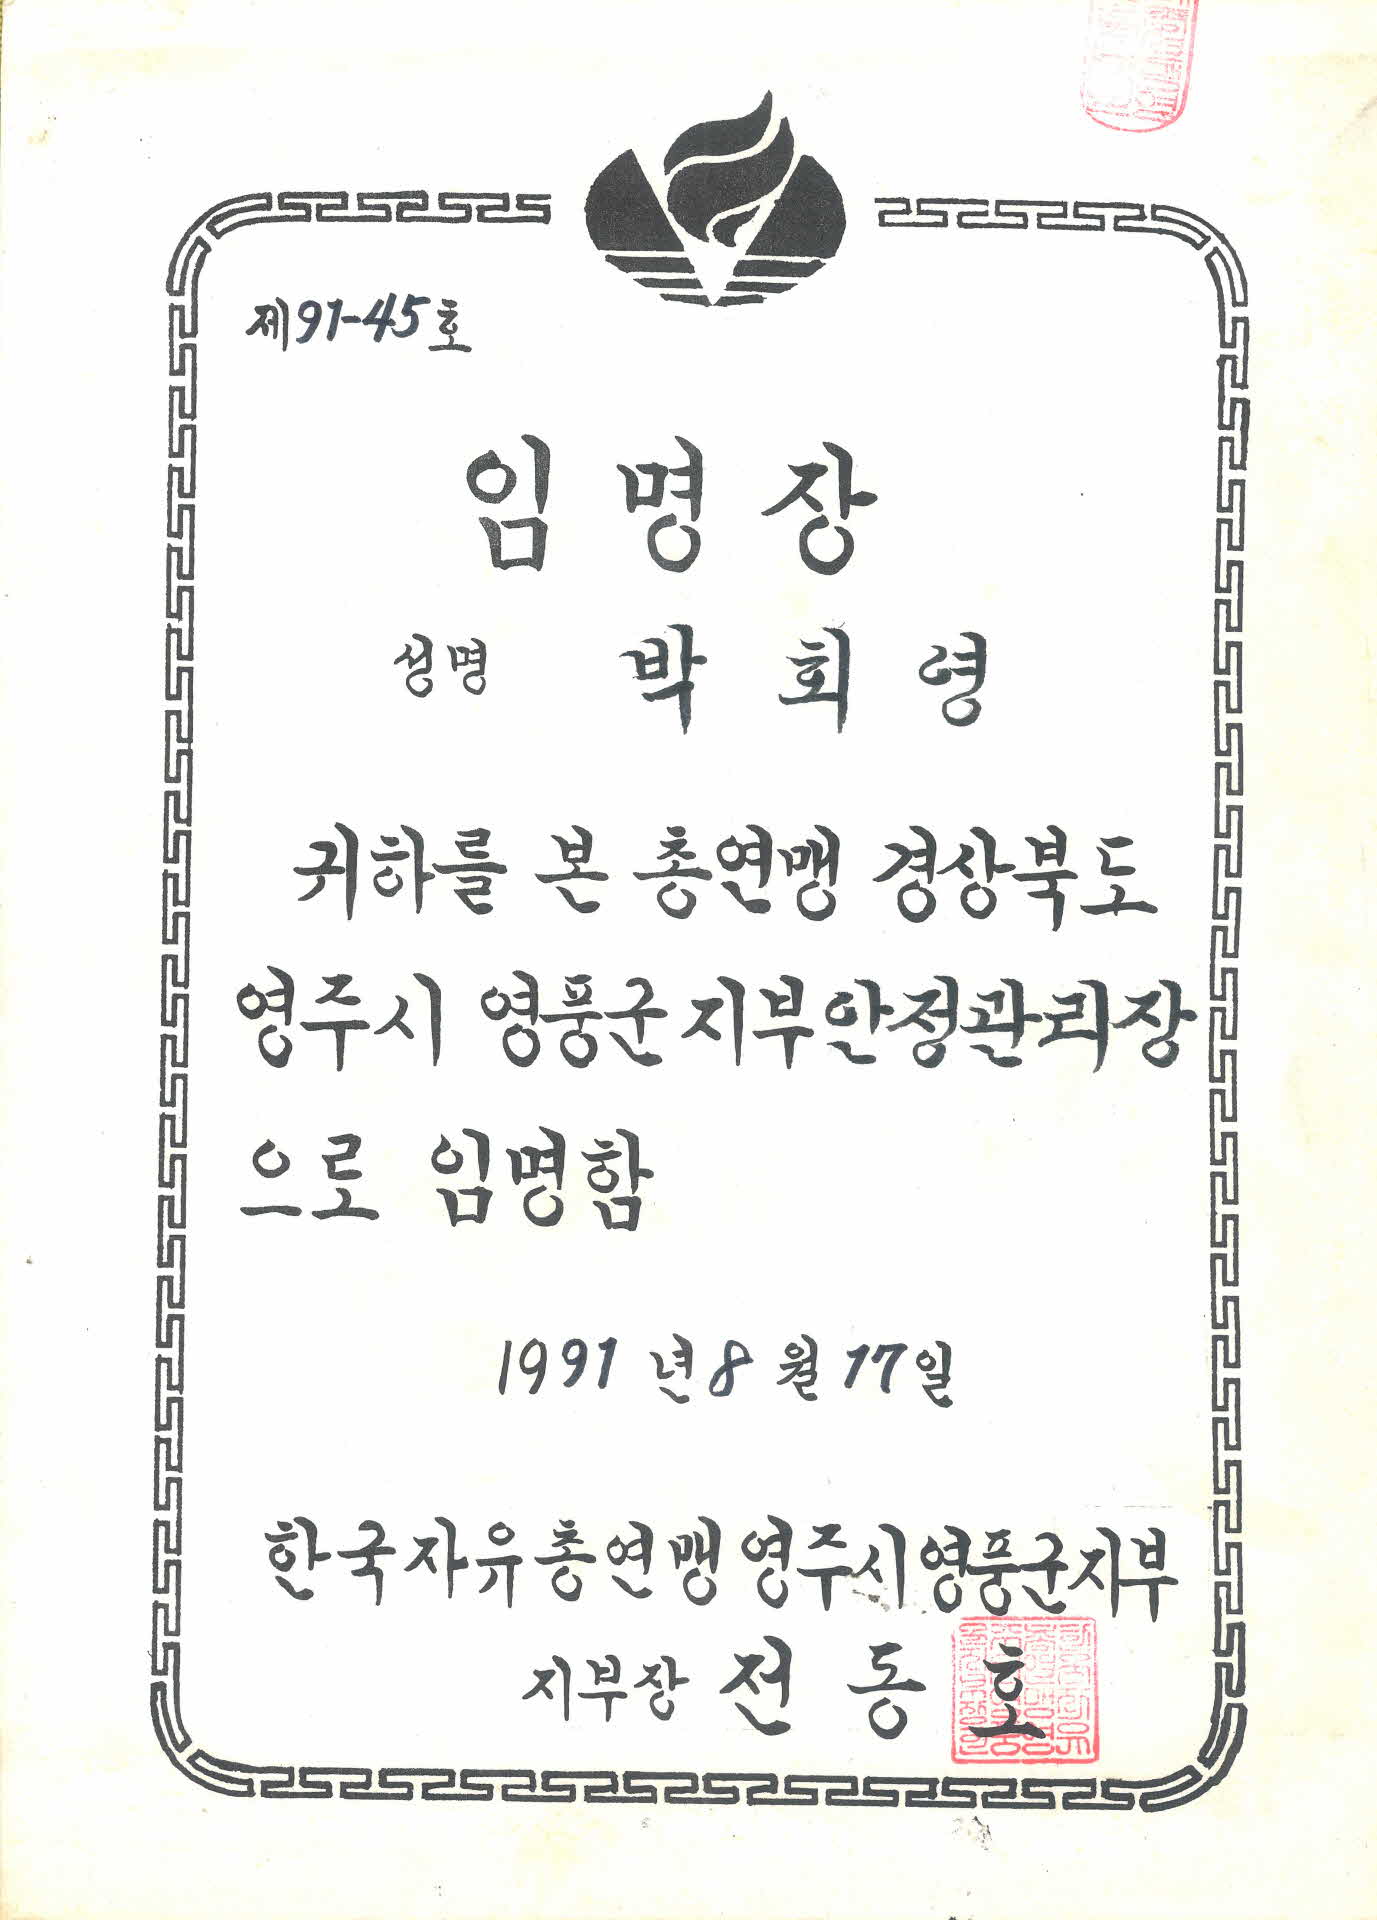 제91-45호
임명장
성명 박희영
귀하를 본 총연맹 경상북도
영주시 영풍군지부안정관리장
으로 임명함
1991년8월17일
한국자유총연맹영주시영풍군지부
지부장 전동호